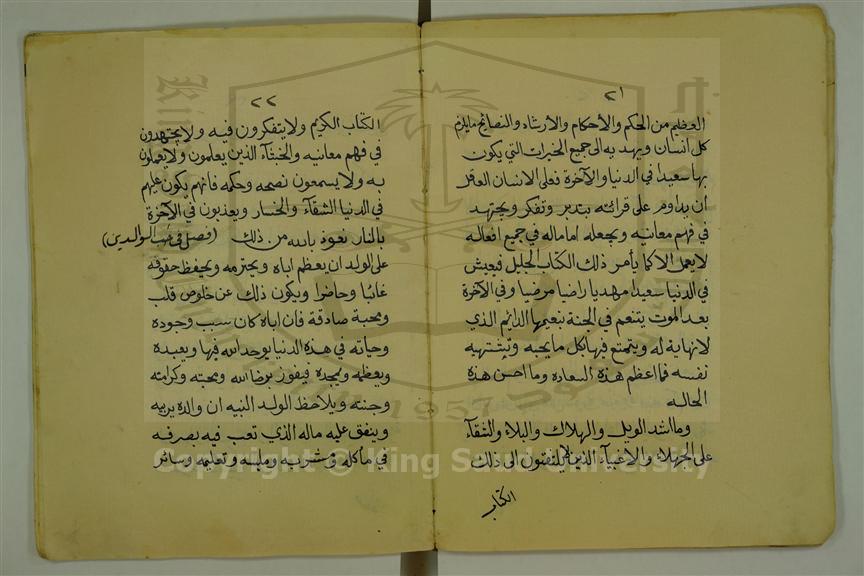 ٢١
العظيم من الحكم والاحكام والارشاد والنصايح مايلزم
كل انسان ويهديه الى جميع الخيرات التي يكون
بها سعيدا في الدنيا والآخرة فعلى الانسان العاقل
ان يداوم على قرائته بتدبر وتفكر ويجتهد
في فهم معانيه ويجعله اماماله في جميع افعاله
لا يعمل الا كما يأمر ذلك الكتاب الجليل فيعيش
في الدنيا سعيدا مهديا راضيا مرضيا وفي الآخرة
بعد الموت يتنعم في الجنة بنعيمها الدائم الذي
لا نهاية له ويتمتع فيها بكل ما يحبه وتشتهيه
نفسه فما اعظم هذه السعاده وما احسن هذه
الحاله
وما اشد الويل والهلاك والبلاء والشقآء
على الجهلاء والاغبيآء الذين لا يلتفتون الى ذلك
الكتاب
٢٢
الكتاب الكريم ولا يتفكرون فيه ولا يجتهدون
في فهم معانيه والخبثآء الذين يعلمون ولا يعملون
به ولا يسمعون نصحه وحكمه فانهم يكون عليهم
في الدنيا الشقآء والخسار ويعذبون في الآخرة
بالنار نعوذ بالله من ذلك (فصل في الوالدين)
على الولد ان يعظم اباه ويحترمه ويحفظ حقوقه
غائبا وحاضرا ويكون ذلك عن خلوص قلب
ومحبة صادقة فان اباه كان سبب وجوده
وحياته في هذه الدنيا يوحد الله فيها ويعبده
ويعظمه ويمجده فيفوز برضا الله ومحبته وكرامته
وجنته ويلاحظ الولد النبيه ان والده يربيه
وينفق عليه ماله الذي تعب فيه يصرفه
في مأكله ومشربه وملبسه وتعليمه وسائر
King Saud University
1957
Copyright © King Saud University